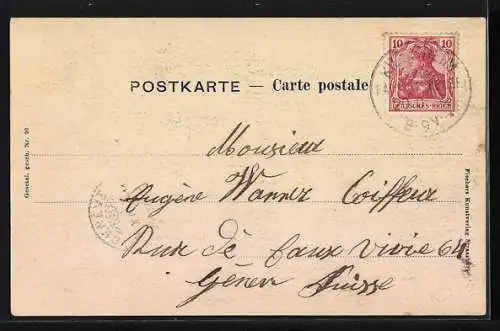 POSTKARTE — Carte postale
10 10
DEUTSCHES REICH
8-9V.
Monsieur
Eugène Wanner Coiffeur
Rue dè Eaux vivie 64
Genève Suisse
Gesetzl. gesch. Nr. 20
Fischers Kunstverlag